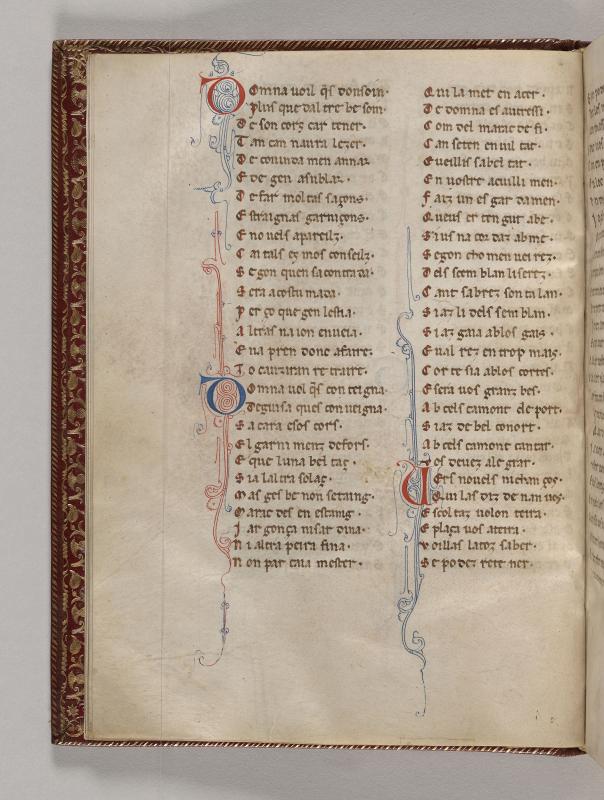 Domna uoil q̄s donsoin·
Plus que dal tre be soin·
De son cors car tener·
Tan can naura lezer·
De couinda men annar
E de gen asublar·
De far moltas faços·
Estraignas garniçons·
E nouels apareilz·
Cai tals es mos conseilz·
Segon quen sa contrada·
Sera acostumada·
Per ço que gen lestia·
Altras naion enueia·
Ena pren donc afaire·
To cauziran retraire·
Domna uol q̄s contegna·
Deguisa ques conueigna·
Sa cara e sos cors·
El garnimenz defors·
E que luna bel taç·
Si a laltra solaç·
Mas ges be non setaing·
Maracdes en estaing·
Jargonça ni sardina·
Ni altra peira fina·
Non par caia mester·
Qui la met en acer·
De domna es autressi·
Com del maracde fi·
Can seten en uil tat·
E ueillis sa bel tat·
En uostre acuilli men·
Faiz un esgardamen·
Queus er tengut a be·
Si us na cordaz ab me·
Segon cho men ueirez·
Dels semblan li serez·
Cant sabrez son talan·
Siaz li dels semblan·
Siaz gaia ab los gais
E ual rez en trop mais·
Cortesia ab los cortes·
E sera uos granz bes·
Ab cels camont deport·
Siaz de bel conort·
Ab cels camont cantar·
Uos deuez alegrar·
Uers nouels ni chanços·
Qui las diz denan uos·
Escoltaz uolonteira·
E plaça uos ateira·
Uoillas latoz saber·
Se podez retener·